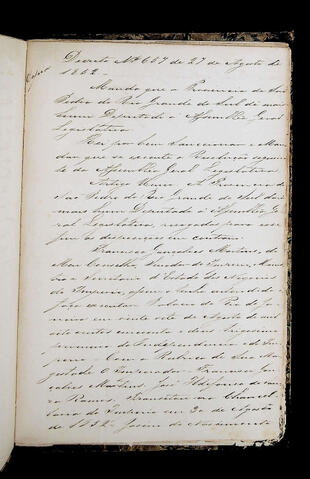 Decreto Nº 657 de 27 de Agosto de
1852.
Manda que a Provincia de São
Pedro do Rio Grande do Sul dê mais
hum Deputado á Assemblea Geral
Legislativa.
Hei por bem Sanccionar e Man
dar que se execute a Resolução seguinte
da Assemblea Geral Legislativa.
Artigo Unico. A Provincia de
São Pedro do Rio Grande do Sul dará
mais hum Deputado á Assemblea Ge
ral Legislativa, revogadas para esse
fim as disposições em contrario.
Francisco Gonsalves Martins, do
Meu Conselho, Senador do Imperio, Minis
tro e Secretario d'Estado dos Negocios
do Imperio, assim o tenha entendido e
faça executar. Palacio do Rio de Ja
neiro em vinte sete de Agosto de mil
oito centos cincoenta e dous, trigesimo
primeiro da Independencia e do Im
perio. Com a Rubrica de Sua Ma
gestade O Imperador. Francisco Gon
salves Martins. José Ildefonso de Sou
za Ramos. Transitou na Chancel
laria do Imperio em de Agosto
de 1852. Josino do Nascimento